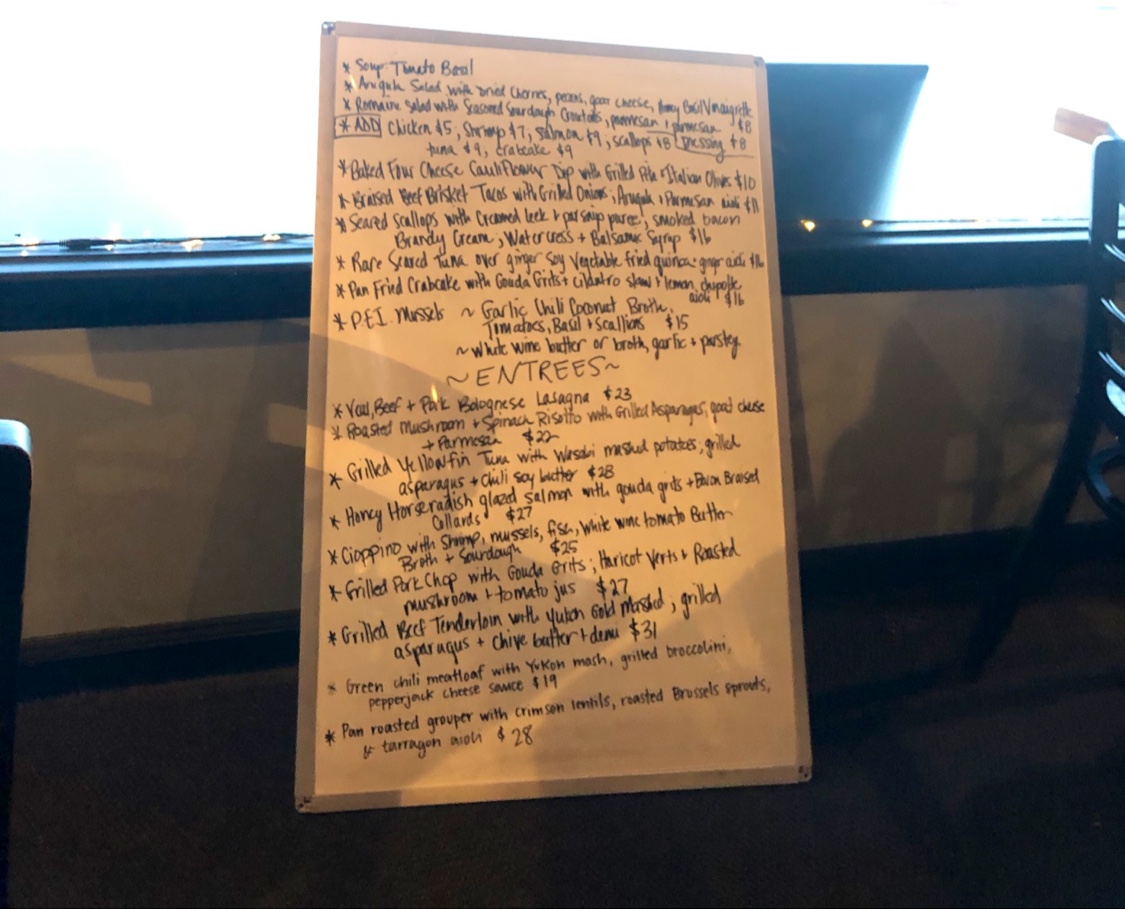 * Soup Tomato Basil
* Arugula Salad with Dried Cherries, pecans, goat cheese, Honey Basil Vinaigrette
* Romaine Salad with Seasoned Sourdough Croutons, parmesan + parmesan $8
* ADD Chicken $5, Shrimp $7, Salmon $9, scallops $8 Dressing $8
tuna $9, crabcake $9
* Baked Four Cheese Cauliflower Dip with Grilled Pita + Italian Olives $10
* Braised Beef Brisket Tacos with Grilled Onions, Arugula + Parmesan aioli $11
* Seared scallops with Creamed leek + parsnip puree, smoked bacon
Brandy Cream, Watercress + Balsamic Syrup $16
* Rare Seared Tuna over ginger Soy Vegetable fried quinoa + ginger aioli $16
* Pan Fried Crabcake with Gouda Grits + cilantro slaw + lemon, chipotle
aioli $16
* P.E.I. Mussels ~ Garlic Chili Coconut Broth,
Tomatoes, Basil + Scallions $15
~ White wine butter or broth, garlic + parsley
~ENTREES~
* Veal, Beef + Pork Bolognese Lasagna $23
* Roasted Mushroom + Spinach Risotto with Grilled Asparagus, goat cheese
+ Parmesan $22
* Grilled Yellowfin Tuna with Wasabi mashed potatoes, grilled
asparagus + chili soy butter $28
* Honey Horseradish glazed salmon with gouda grits + Bacon Braised
Collards $27
* Cioppino with Shrimp, mussels, fish, white wine tomato Butter
Broth + Sourdough $25
* Grilled Pork Chop with Gouda Grits, Haricot Verts + Roasted
mushroom + tomato jus $27
* Grilled Beef Tenderloin with Yukon Gold Mashed, grilled
asparagus + Chive butter + demi $31
* Green chili meatloaf with Yukon mash, grilled broccolini,
pepperjack cheese sauce $19
* Pan roasted grouper with crimson lentils, roasted Brussels sprouts,
& tarragon aioli $28